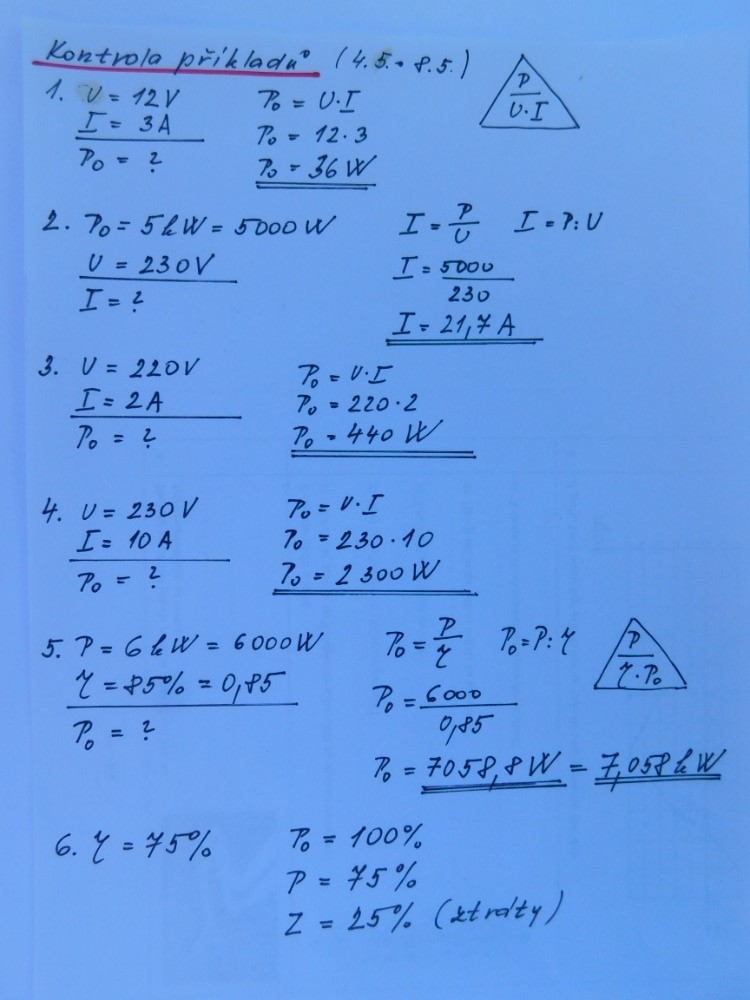 Kontrola příkladů (4.5. - 8.5.)
P
U·I
1. U = 12V
I = 3A
P₀ = ?
P₀ = U·I
P₀ = 12·3
P₀ = 36W
2. P₀ = 5kW = 5000W
U = 230V
I = ?
I = P/U I = P:U
I = 5000/230
I = 21,7A
3. U = 220V
I = 2A
P₀ = ?
P₀ = U·I
P₀ = 220·2
P₀ = 440W
4. U = 230V
I = 10A
P₀ = ?
P₀ = U·I
P₀ = 230·10
P₀ = 2 300W
5. P = 6kW = 6000W
η = 85% = 0,85
P₀ = ?
P₀ = P/η P₀ = P:η
P₀ = 6000/0,85
P₀ = 7058,8W = 7,058kW
P
η·P₀
6. η = 75%
P₀ = 100%
P = 75%
Z = 25% (ztráty)